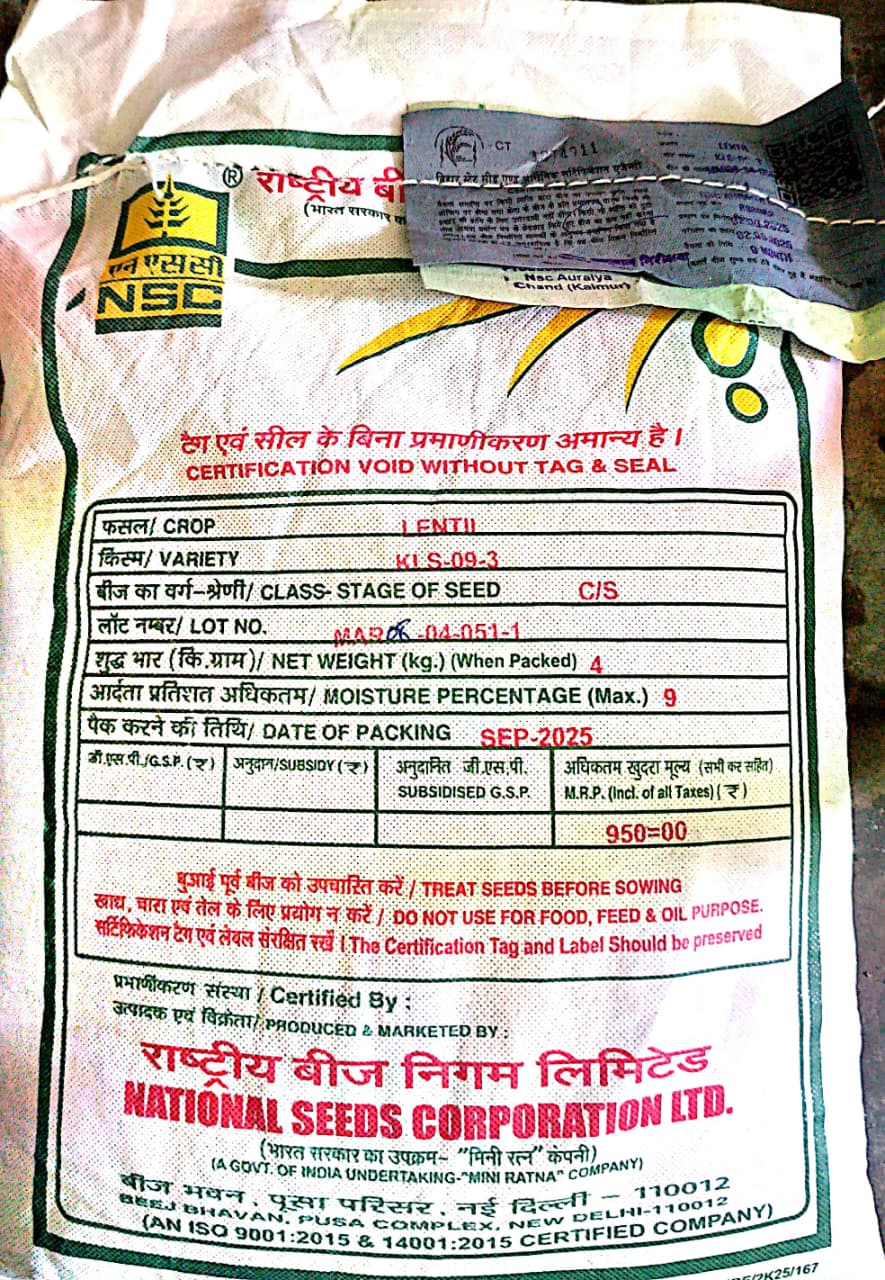 ® राष्ट्रीय बी
(भारत सरकार का
एन एस सी
NSC
CT
बिहार स्टेट सीड एण्ड ऑर्गेनिक सर्टिफिकेशन एजेन्सी
LENTIL
9 MONTH
Nsc Auraiya
Chand (Kaimur)
टैग एवं सील के बिना प्रमाणीकरण अमान्य है ।
CERTIFICATION VOID WITHOUT TAG & SEAL
फसल/ CROP LENTIL
किस्म/ VARIETY KLS-09-3
बीज का वर्ग–श्रेणी/ CLASS- STAGE OF SEED C/S
लॉट नम्बर/ LOT NO. -04-051-1
शुद्ध भार (कि.ग्राम)/ NET WEIGHT (kg.) (When Packed) 4
आर्दता प्रतिशत अधिकतम/ MOISTURE PERCENTAGE (Max.) 9
पैक करने की तिथि/ DATE OF PACKING SEP-2025
जी.एस.पी./G.S.P. (₹) अनुदान/SUBSIDY (₹) अनुदानित जी.एस.पी. अधिकतम खुदरा मूल्य (सभी कर सहित)
SUBSIDISED G.S.P. M.R.P. (Incl. of all Taxes) (₹)
950=00
बुआई पूर्व बीज को उपचारित करें / TREAT SEEDS BEFORE SOWING
खाद्य, चारा एवं तेल के लिए प्रयोग न करें / DO NOT USE FOR FOOD, FEED & OIL PURPOSE.
सर्टिफिकेशन टैग एवं लेबल संरक्षित रखें । The Certification Tag and Label Should be preserved
प्रमाणीकरण संस्था / Certified By :
उत्पादक एवं विक्रेता/ PRODUCED & MARKETED BY :
राष्ट्रीय बीज निगम लिमिटेड
NATIONAL SEEDS CORPORATION LTD.
(भारत सरकार का उपक्रम– "मिनी रत्न" कंपनी)
(A GOVT. OF INDIA UNDERTAKING-"MINI RATNA" COMPANY)
बीज भवन, पूसा परिसर, नई दिल्ली – 110012
BEEJ BHAVAN, PUSA COMPLEX, NEW DELHI-110012
(AN ISO 9001:2015 & 14001:2015 CERTIFIED COMPANY)
/2K25/167